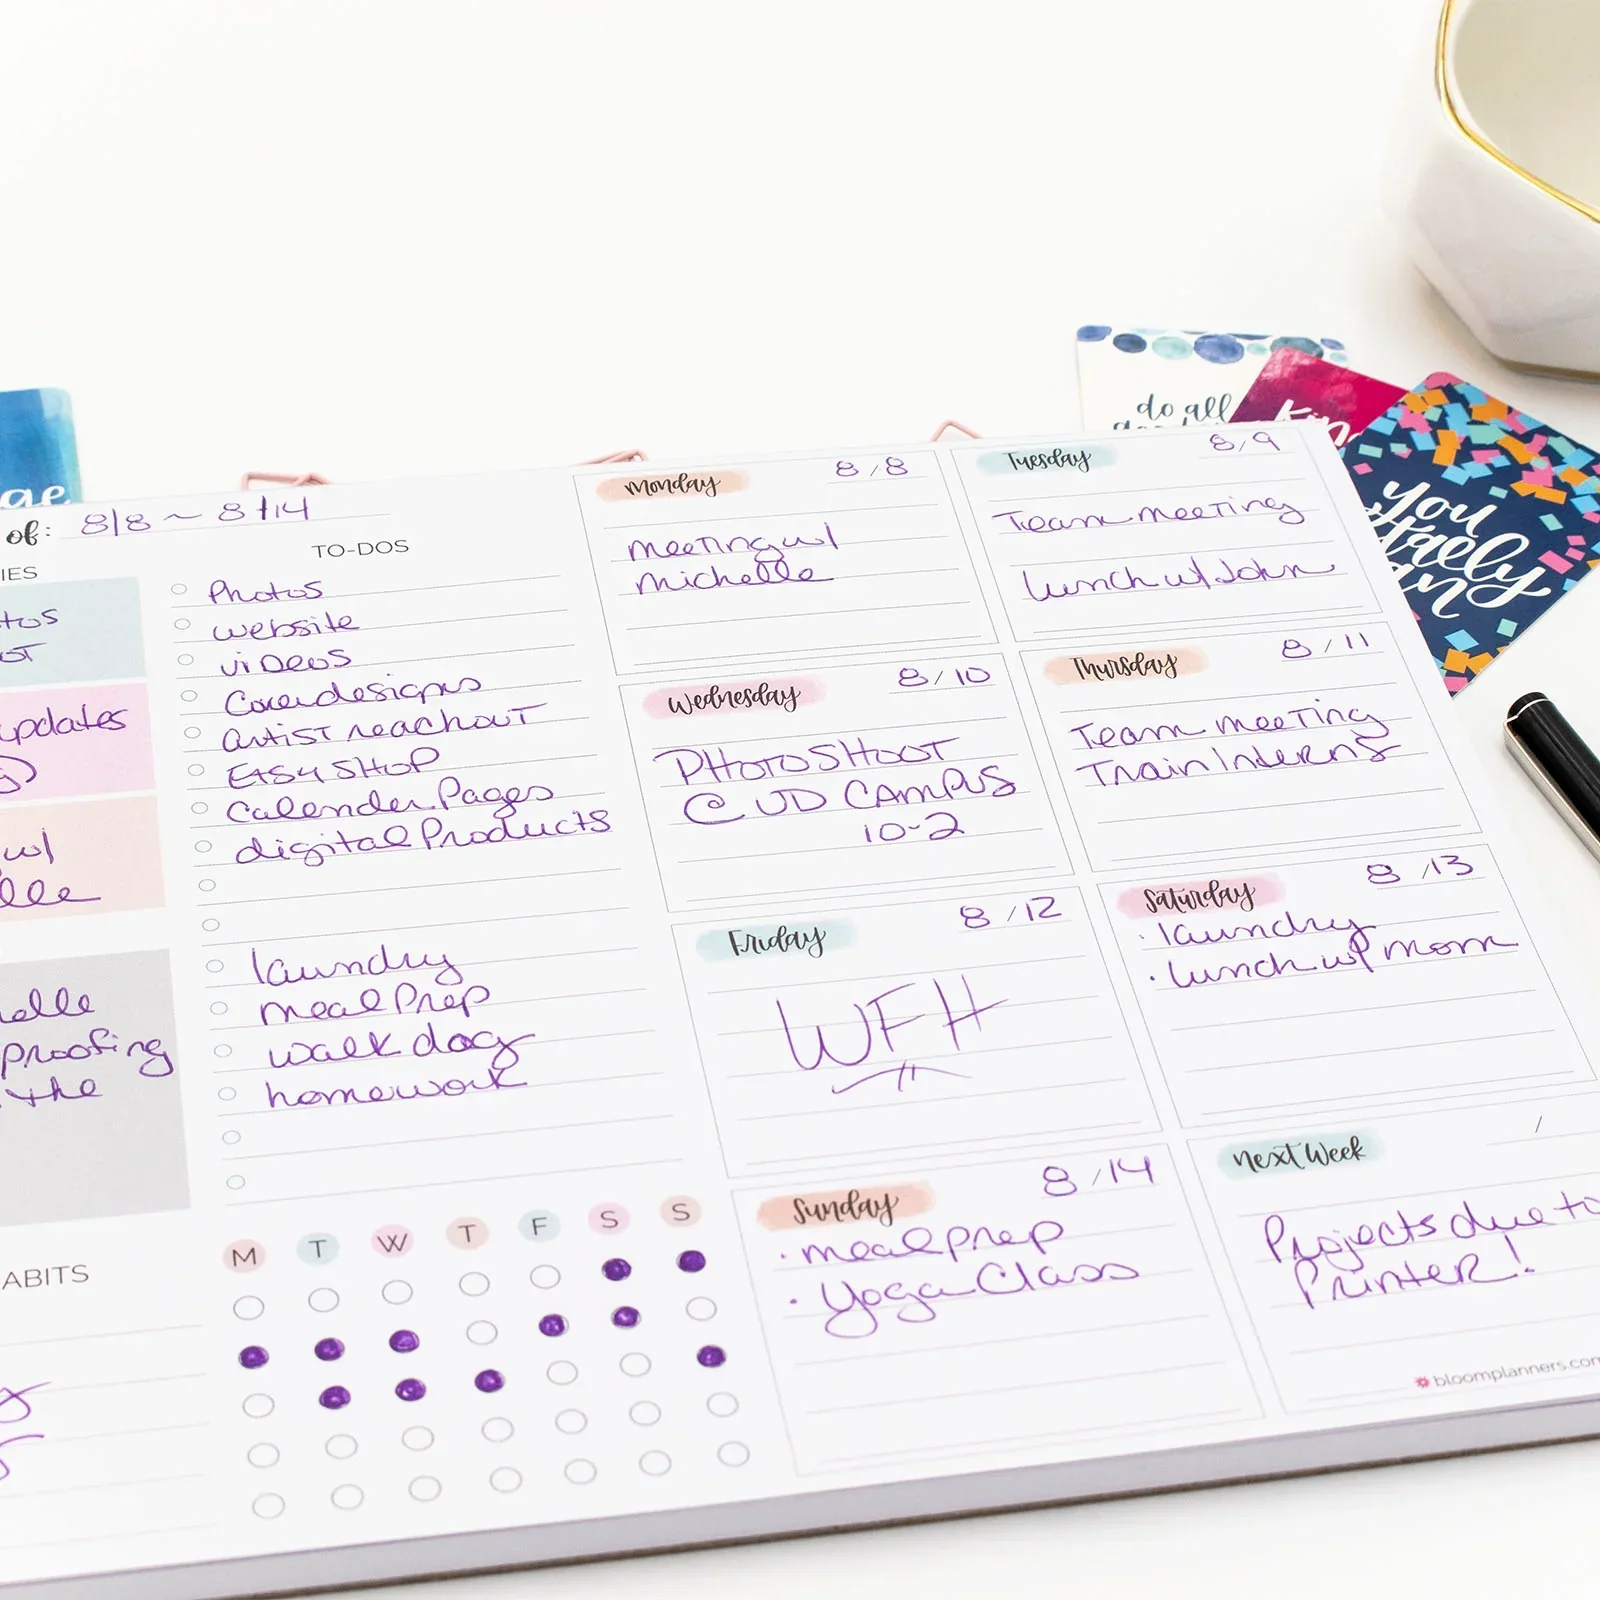 of: 8/8 ~ 8/14
TO-DOS
Photos
website
videos
Cover designs
artist reachout
Etsy SHOP
Calender Pages
digital Products
laundry
meal Prep
walk dog
homework
updates
w/
proofing
the
ABITS
M T W T F S S
Monday 8/8
meeting w/
michelle
Tuesday 8/9
Team meeting
lunch w/ John
Wednesday 8/10
PHOTOSHOOT
@ UD CAMPUS
10-2
Thursday 8/11
Team meeting
Train Interns
Friday 8/12
WFH
Saturday 8/13
· laundry
· lunch w/ mom
Sunday 8/14
· meal prep
· Yoga Class
next Week /
Projects due to
Printer!
bloomplanners.com
do all
you